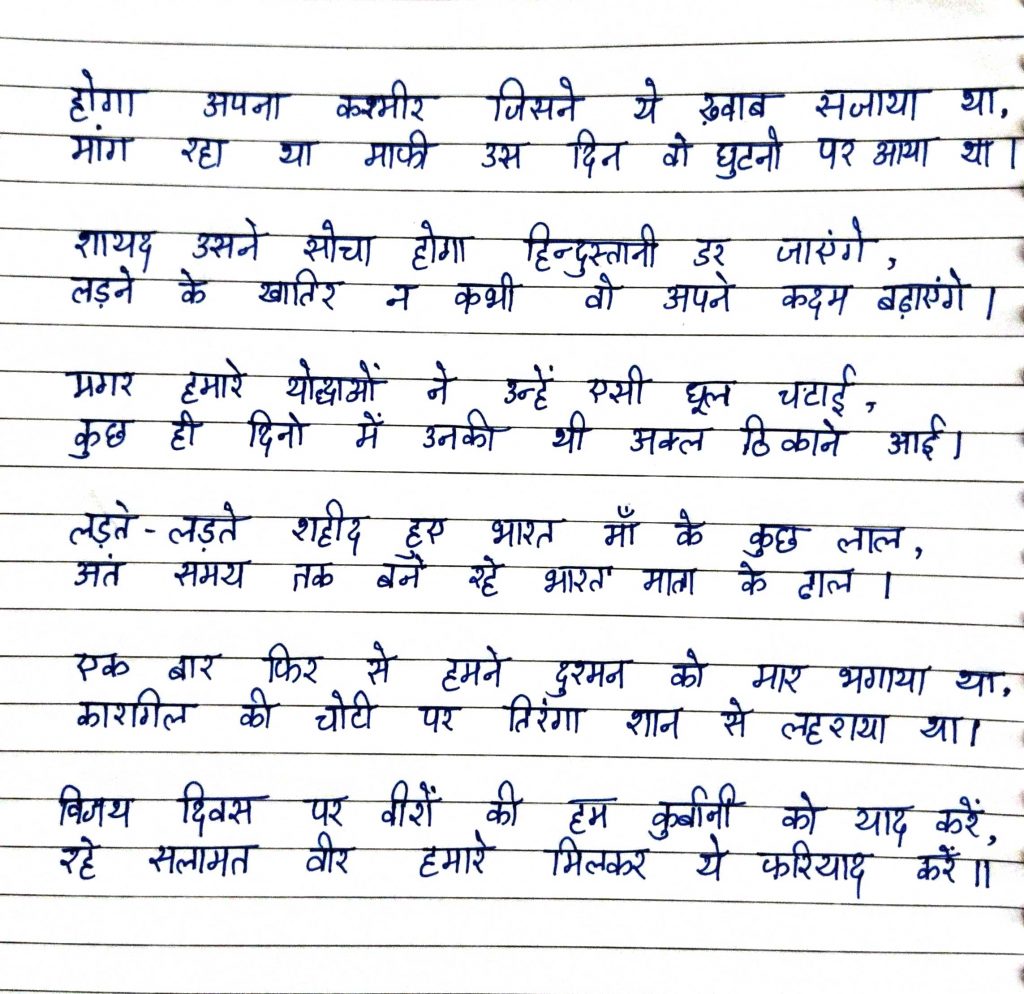 होगा अपना कश्मीर जिसने ये ख़्वाब सजाया था,
मांग रहा था माफी उस दिन वो घुटनो पर आया था।
शायद उसने सोचा होगा हिन्दुस्तानी डर जाएंगे,
लड़ने के खातिर न कभी वो अपने कदम बढ़ाएंगे।
मगर हमारे योद्धाओं ने उन्हें एसी धूल चटाई,
कुछ ही दिनो में उनकी थी अक्ल ठिकाने आई।
लड़ते-लड़ते शहीद हुए भारत माँ के कुछ लाल,
अतं समय तक बने रहे भारत माता के ढाल।
एक बार फिर से हमने दुश्मन को मार भगाया था,
कारगिल की चोटी पर तिरंगा शान से लहराया था।
विजय दिवस पर वीरों की हम कुर्बानी को याद करें,
रहे सलामत वीर हमारे मिलकर ये फरियाद करें॥